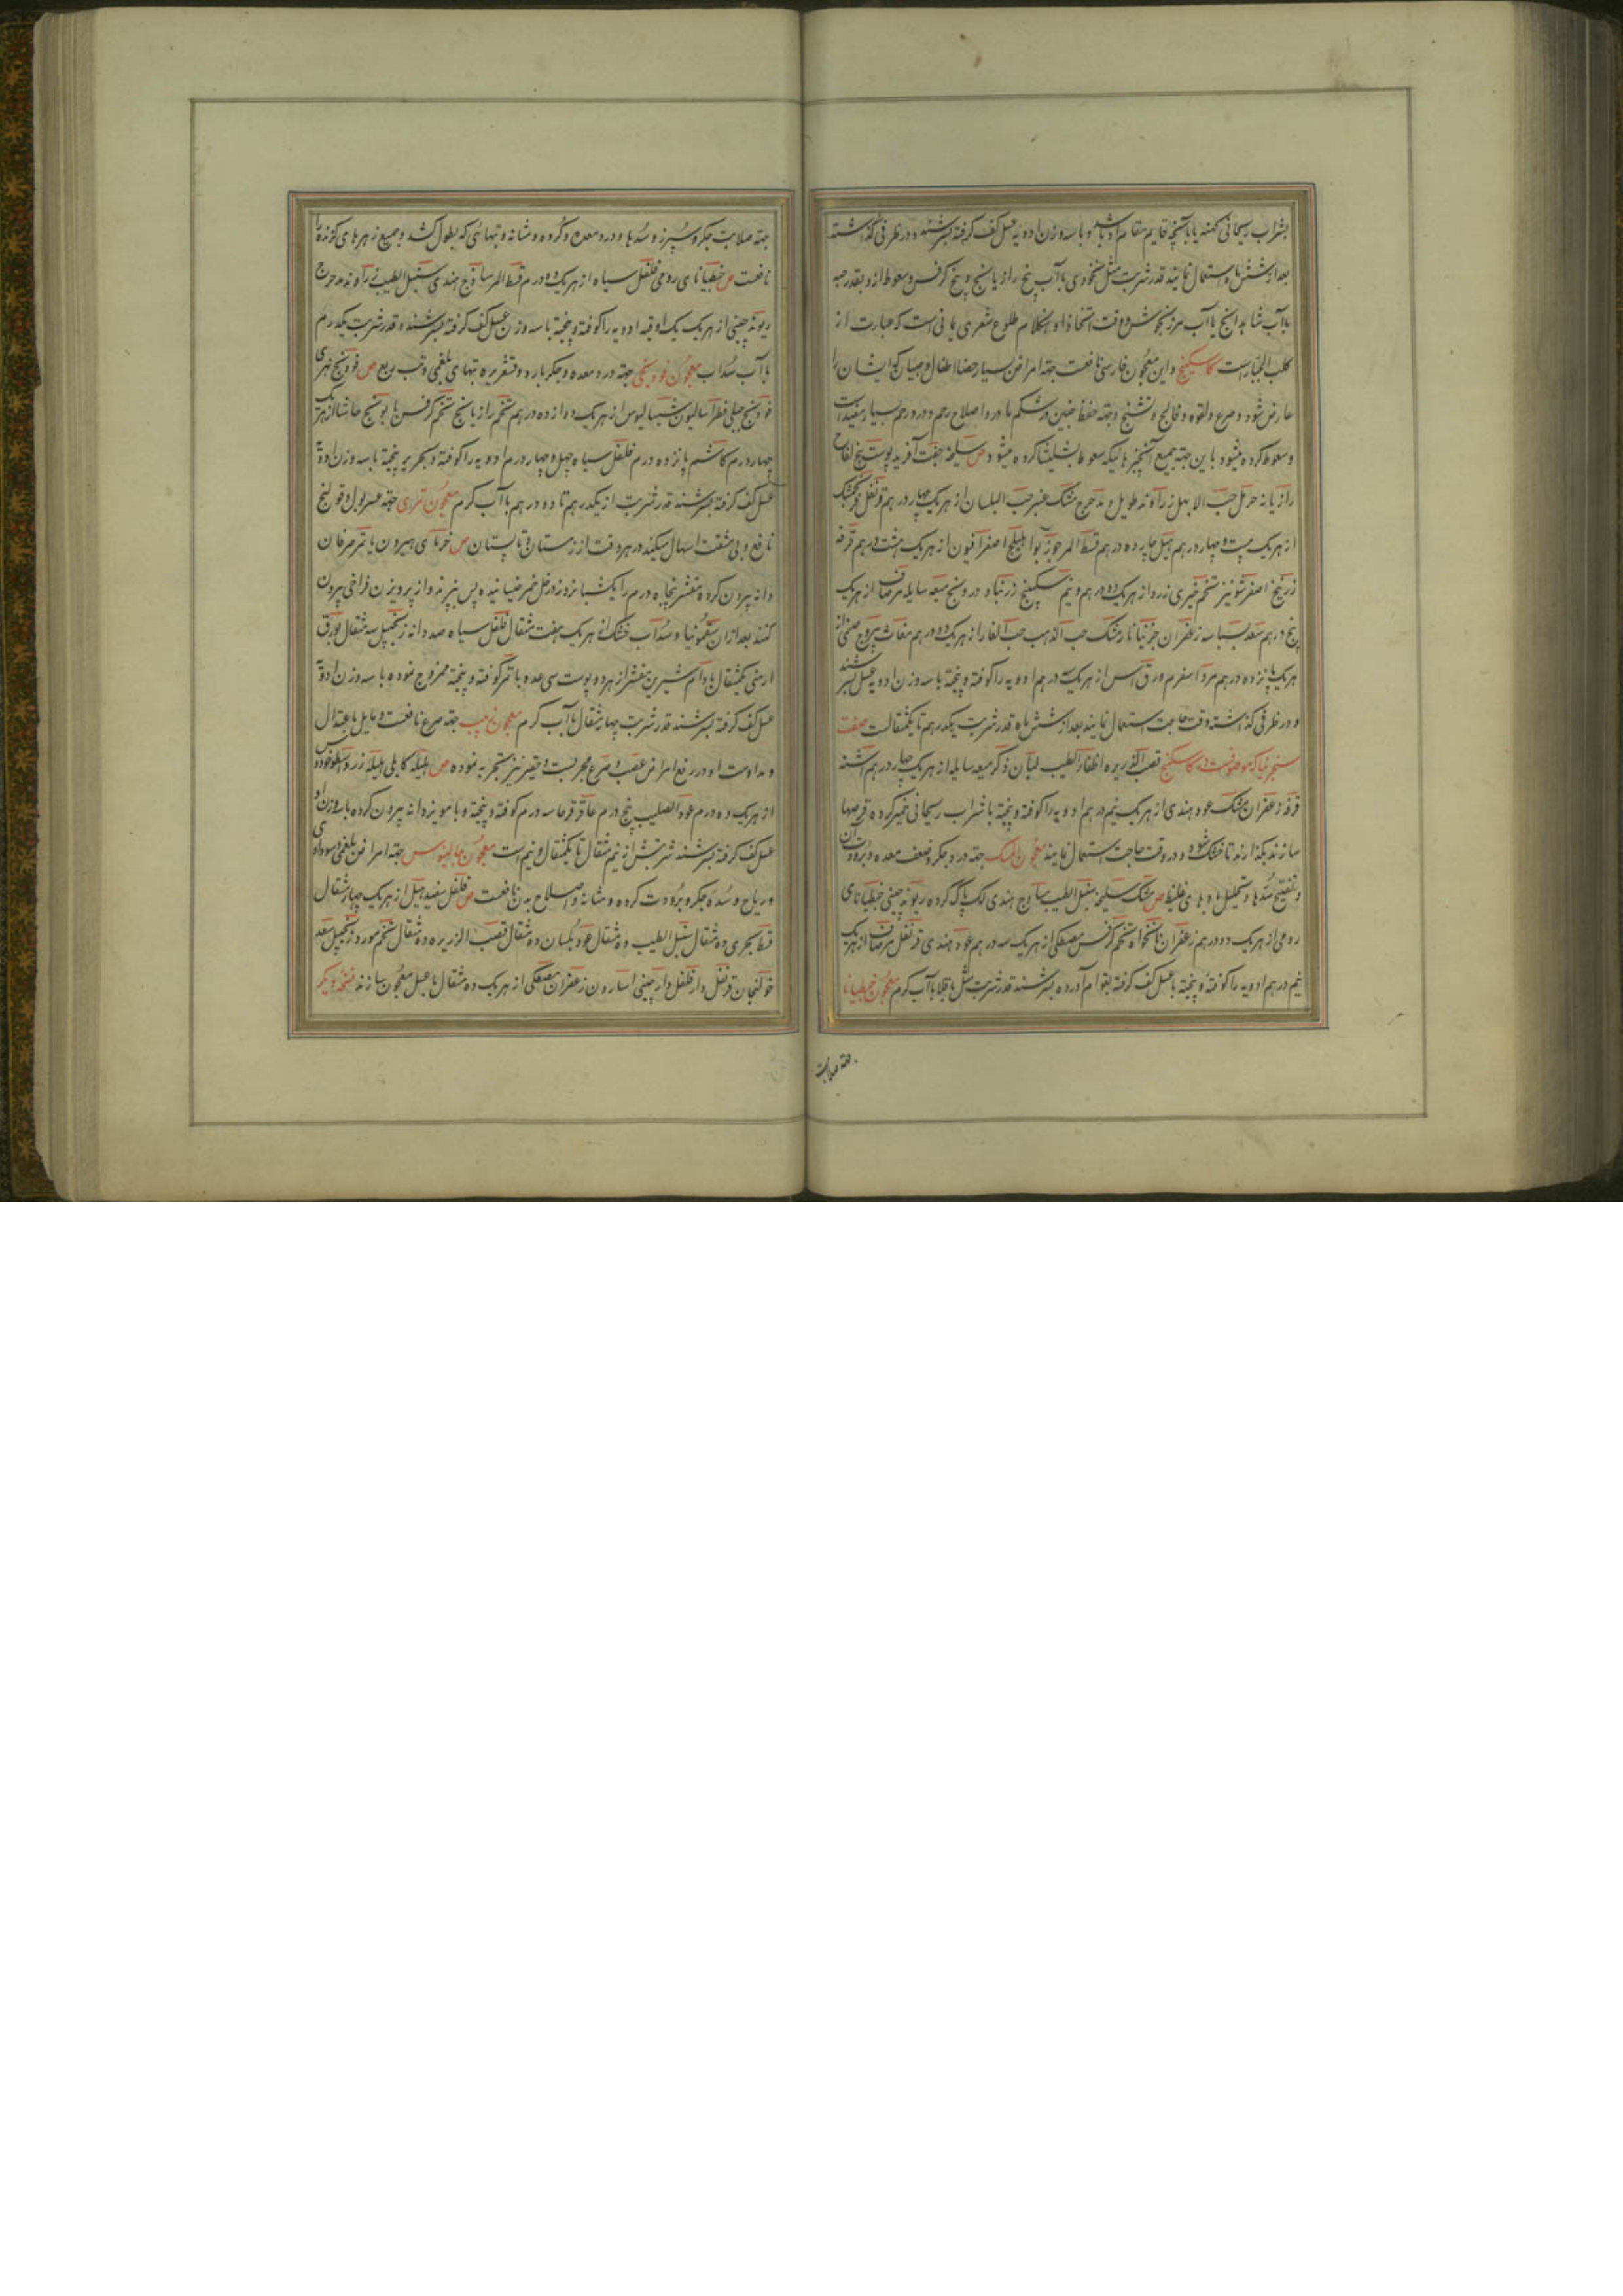 بشراب ریحانی کهنه یا بآنچه قایم مقام او باشد و با سه وزن ادویه عسل کف کرفته بسرشند و در ظرفی کذاشته
بعد از شش ماه استعمال نمایند قدر شربت مثل نخودی با آب بیخ رازیانج و بیخ کرفس و سعوط ازو بقدر حبه
با آب شابدانج یا آب مرزنجوش و وقت اتخاذ او هنکام طلوع شعری یمانی است که عبارت از
کلب الجبار است کاسکبینج و این معجون فارسی نافعست جهة امراض بسیار خصوصا اطفال و صبیان که ایشان را
عارض شود و صرع و لقوه و فالج و تشنج و جهة حفظ جنین در شکم مادر و اصلاح رحم و درد رحم بسیار مفید است
و سعوط کرده میشود باین جهة جمیع آنچیزها که سعوط بشلیثا کرده میشود ص سلیخه جفت آفرید پوست بیخ لفاح
رازیانه حرمل حب الابهل زراوند طویل و مدحرج مشک عنبر حب البلسان از هریک چهار درهم قرنفل
از هریک بیست و چهار درهم هیل چارده درهم قسط المر جوز بوا هلیلج اصفر افیون از هریک هشت درهم قرفه
زرنیخ اصفر شونیز تخم خیری زرد از هریک دو درهم و نیم سکبینج زرنباد درونج میعه سایله مر صاف از هریک
پنج درهم سعد بسباسه زعفران نارمشک حب الذهب حب الغار از هریک ده درهم مغاث
هریک پانزده درهم مرداسفرم ورق آس از هریک درهم ادویه را کوفته و پیخته با سه وزن ادویه عسل بسرشند
و در ظرفی کذاشته وقت حاجت استعمال نمایند بعد از شش ماه قدر شربت یکدرهم تا یکمثقالست صفت
سنجرنیا که موصوفست در کاسکبینج قصب الذریره اظفار الطیب لبان ذکر میعه سایله از هریک چهار درهم اشنه
قرفه زعفران مشک عود هندی از هریک نیم درهم ادویه را کوفته و پیخته با شراب ریحانی خمیر کرده قرصها
سازند بکذارند تا خشک شود و در وقت حاجت استعمال نمایند معجون المسک جهة درد جکر و ضعف معده و برودت آن
و تفتیح سدها و تحلیل بادهای غلیظ ص مشک سلیخه سنبل الطیب ساذج هندی لک پاک کرده ریوند چینی جنطیانای
رومی از هریک دو درهم زعفران نانخواه تخم کرفس مصطکی از هریک سه درهم عود هندی قرنفل مر صاف از هریک
نیم درهم ادویه را کوفته و پیخته با عسل کف کرفته بقوام آورده بسرشند قدر شربت مثل باقلا با آب کرم معجون جنطیانا
جهة صلابت
جهة صلابت جکر و سپرز و سدها و درد معده و کرده و مثانه و تبهائی که بطول کشد و جمیع زهرهای کزنده را
نافعست ص جنطیانای رومی فلفل سیاه از هریک ده درم قسط المر ساذج هندی سنبل الطیب زراوند مدحرج
ریوند چینی از هریک یک اوقیه ادویه را کوفته و پیخته با سه وزن عسل کف کرفته بسرشند قدر شربت یکدرم
با آب سداب معجون فودنجی جهة درد معده و جکر بارد و قشعریره تبهای بلغمی و تب ربع ص فودنج نهری
فودنج جبلی فطراسالیون سیسالیوس از هریک دوازده درهم تخم رازیانج تخم کرفس بابونج حاشا از هریک
چهار درم کاشم پانزده درم فلفل سیاه چهل و چهار درم ادویه را کوفته و بحریر پیخته با سه وزن ادویه
عسل کف کرفته بسرشند قدر شربت از یکدرهم تا دو درهم با آب کرم معجون تمری جهة عسر بول و قولنج
نافع و بی مشقت اسهال میکند در هر وقت از زمستان و تابستان ص خرمای هیرون یا تمر صرفان
دانه بیرون کرده مقشر پنجاه درم را یکشبانروز در خل خمر خیسانیده پس بپزند و از پرویزن فراخی بیرون
کنند بعد از ان سقمونیا و سداب خشک از هریک هفت مثقال فلفل سیاه صد دانه زنجبیل سه مثقال بورق
ارمنی یکمثقال بادام شیرین مقشر از هر دو پوست سی عدد با تمر کوفته و پیخته ممزوج نموده با سه وزن ادویه
عسل کف کرفته بسرشند قدر شربت چهار مثقال با آب کرم معجون جهة صرع نافعست و مایل باعتدال
و مداومت او در رفع امراض عصب و صرع مجربست و حقیر نیز تجربه نموده ص هلیله کابلی هلیله زرد اسطوخودوس
از هریک ده درم عود الصلیب پنج درم عاقرقرحا سه درم کوفته و پیخته و با مویز دانه بیرون کرده با سه وزن او
عسل کف کرفته بسرشند شربتش از نیم مثقال تا یکمثقال و نیم است معجون جالینوس جهة امراض بلغمی و سوداوی
و ریاح و سده جکر و برودت کرده و مثانه و اصلاح بدن نافعست ص فلفل سفید هیل از هریک چهار مثقال
قسط بحری ده مثقال سنبل الطیب ده مثقال عود بلسان ده مثقال قصب الذریره ده مثقال تخم مورد زنجبیل سعد
خولنجان قرنفل دارفلفل دارچینی اسارون زعفران مصطکی از هریک ده مثقال با عسل معجون سازند نسخه دیکر